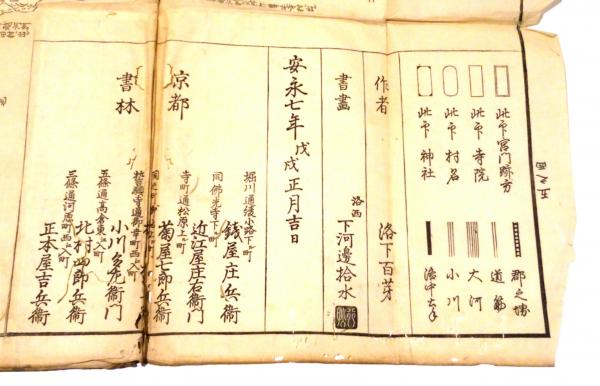 此印宮門跡方
此印寺院
此印村名
此印神社
郡之境
道筋
大河
小川
作者 洛下百芽
書畫 洛西 下河邊拾水
安永七年戊戌正月吉日
京都
書林
堀川通綾小路下ル町
錢屋庄兵衛
同佛光寺下ル町
近江屋庄右衛門
寺町通松原上ル町
菊屋七郎兵衛
誓願寺通御幸町西ヘ入町
小川多左衛門
五條通高倉東ヘ入町
北村四郎兵衛
三條通河原町西ヘ入町
正本屋吉兵衛